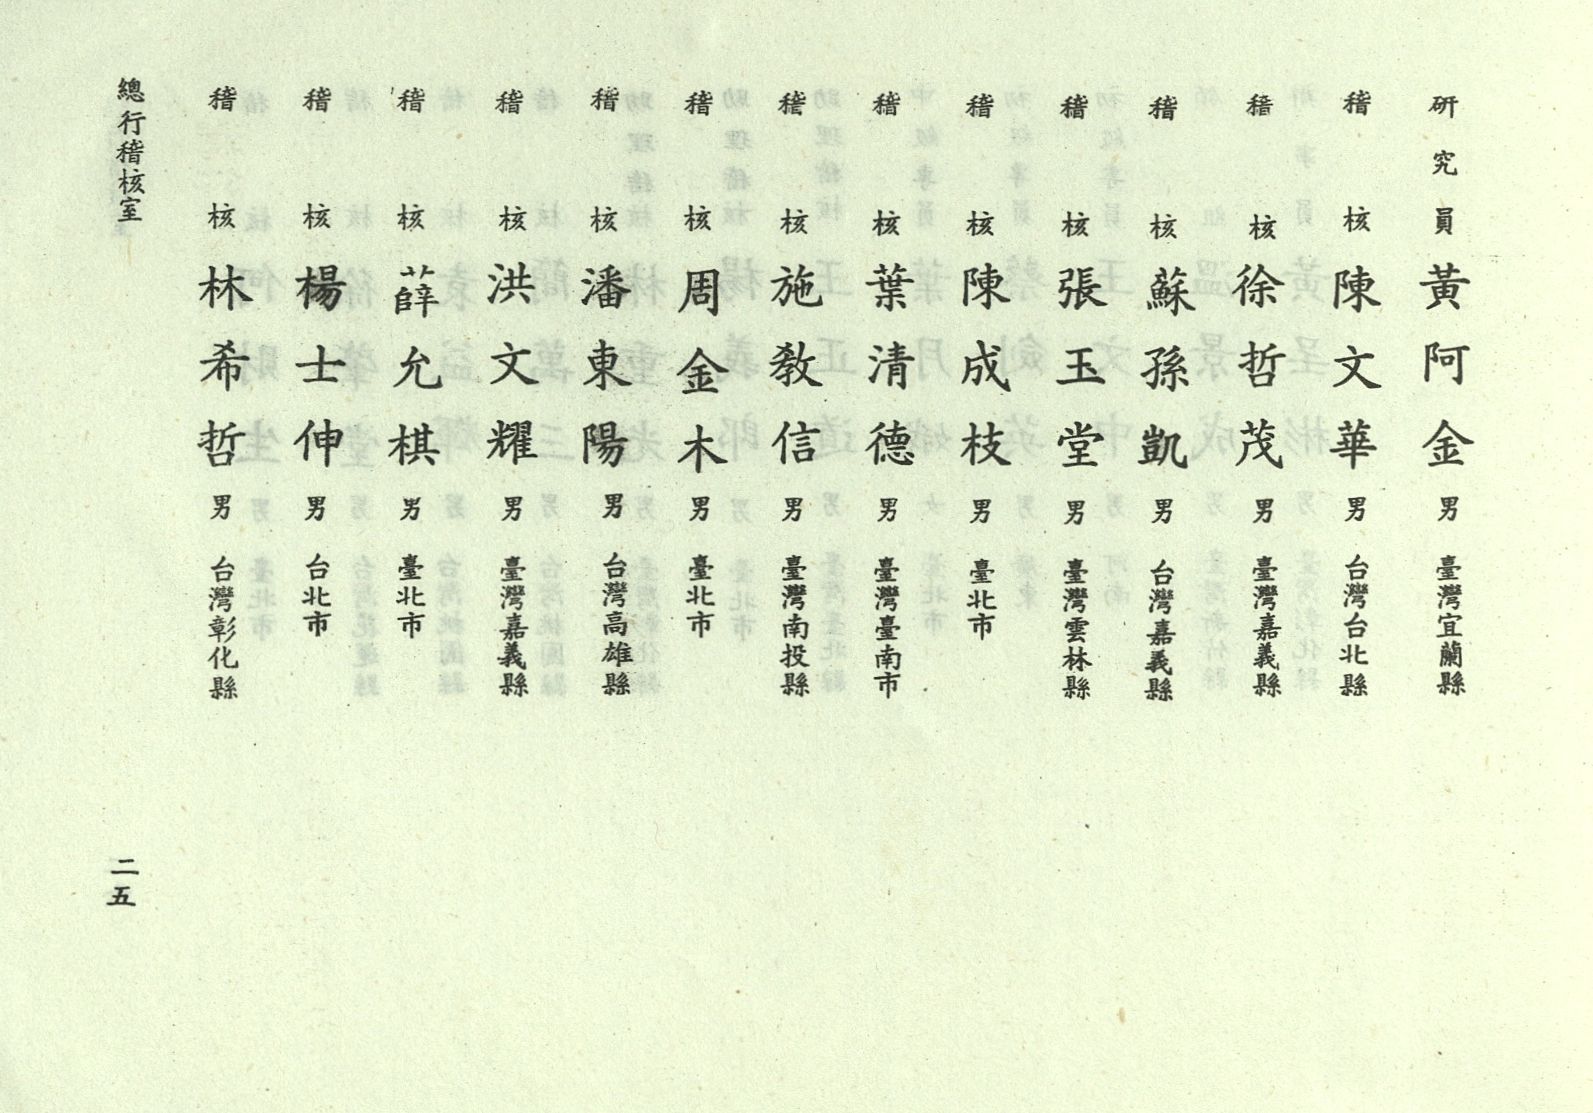 研究員 黃阿金 男 臺灣宜蘭縣
稽核 陳文華 男 台灣台北縣
稽核 徐哲茂 男 臺灣嘉義縣
稽核 蘇孫凱 男 台灣嘉義縣
稽核 張玉堂 男 臺灣雲林縣
稽核 陳成枝 男 臺北市
稽核 葉清德 男 臺灣臺南市
稽核 施教信 男 臺灣南投縣
稽核 周金木 男 臺北市
稽核 潘東陽 男 台灣高雄縣
稽核 洪文耀 男 臺灣嘉義縣
稽核 薛允棋 男 臺北市
稽核 楊士伸 男 台北市
稽核 林希哲 男 台灣彰化縣
總行稽核室
二五